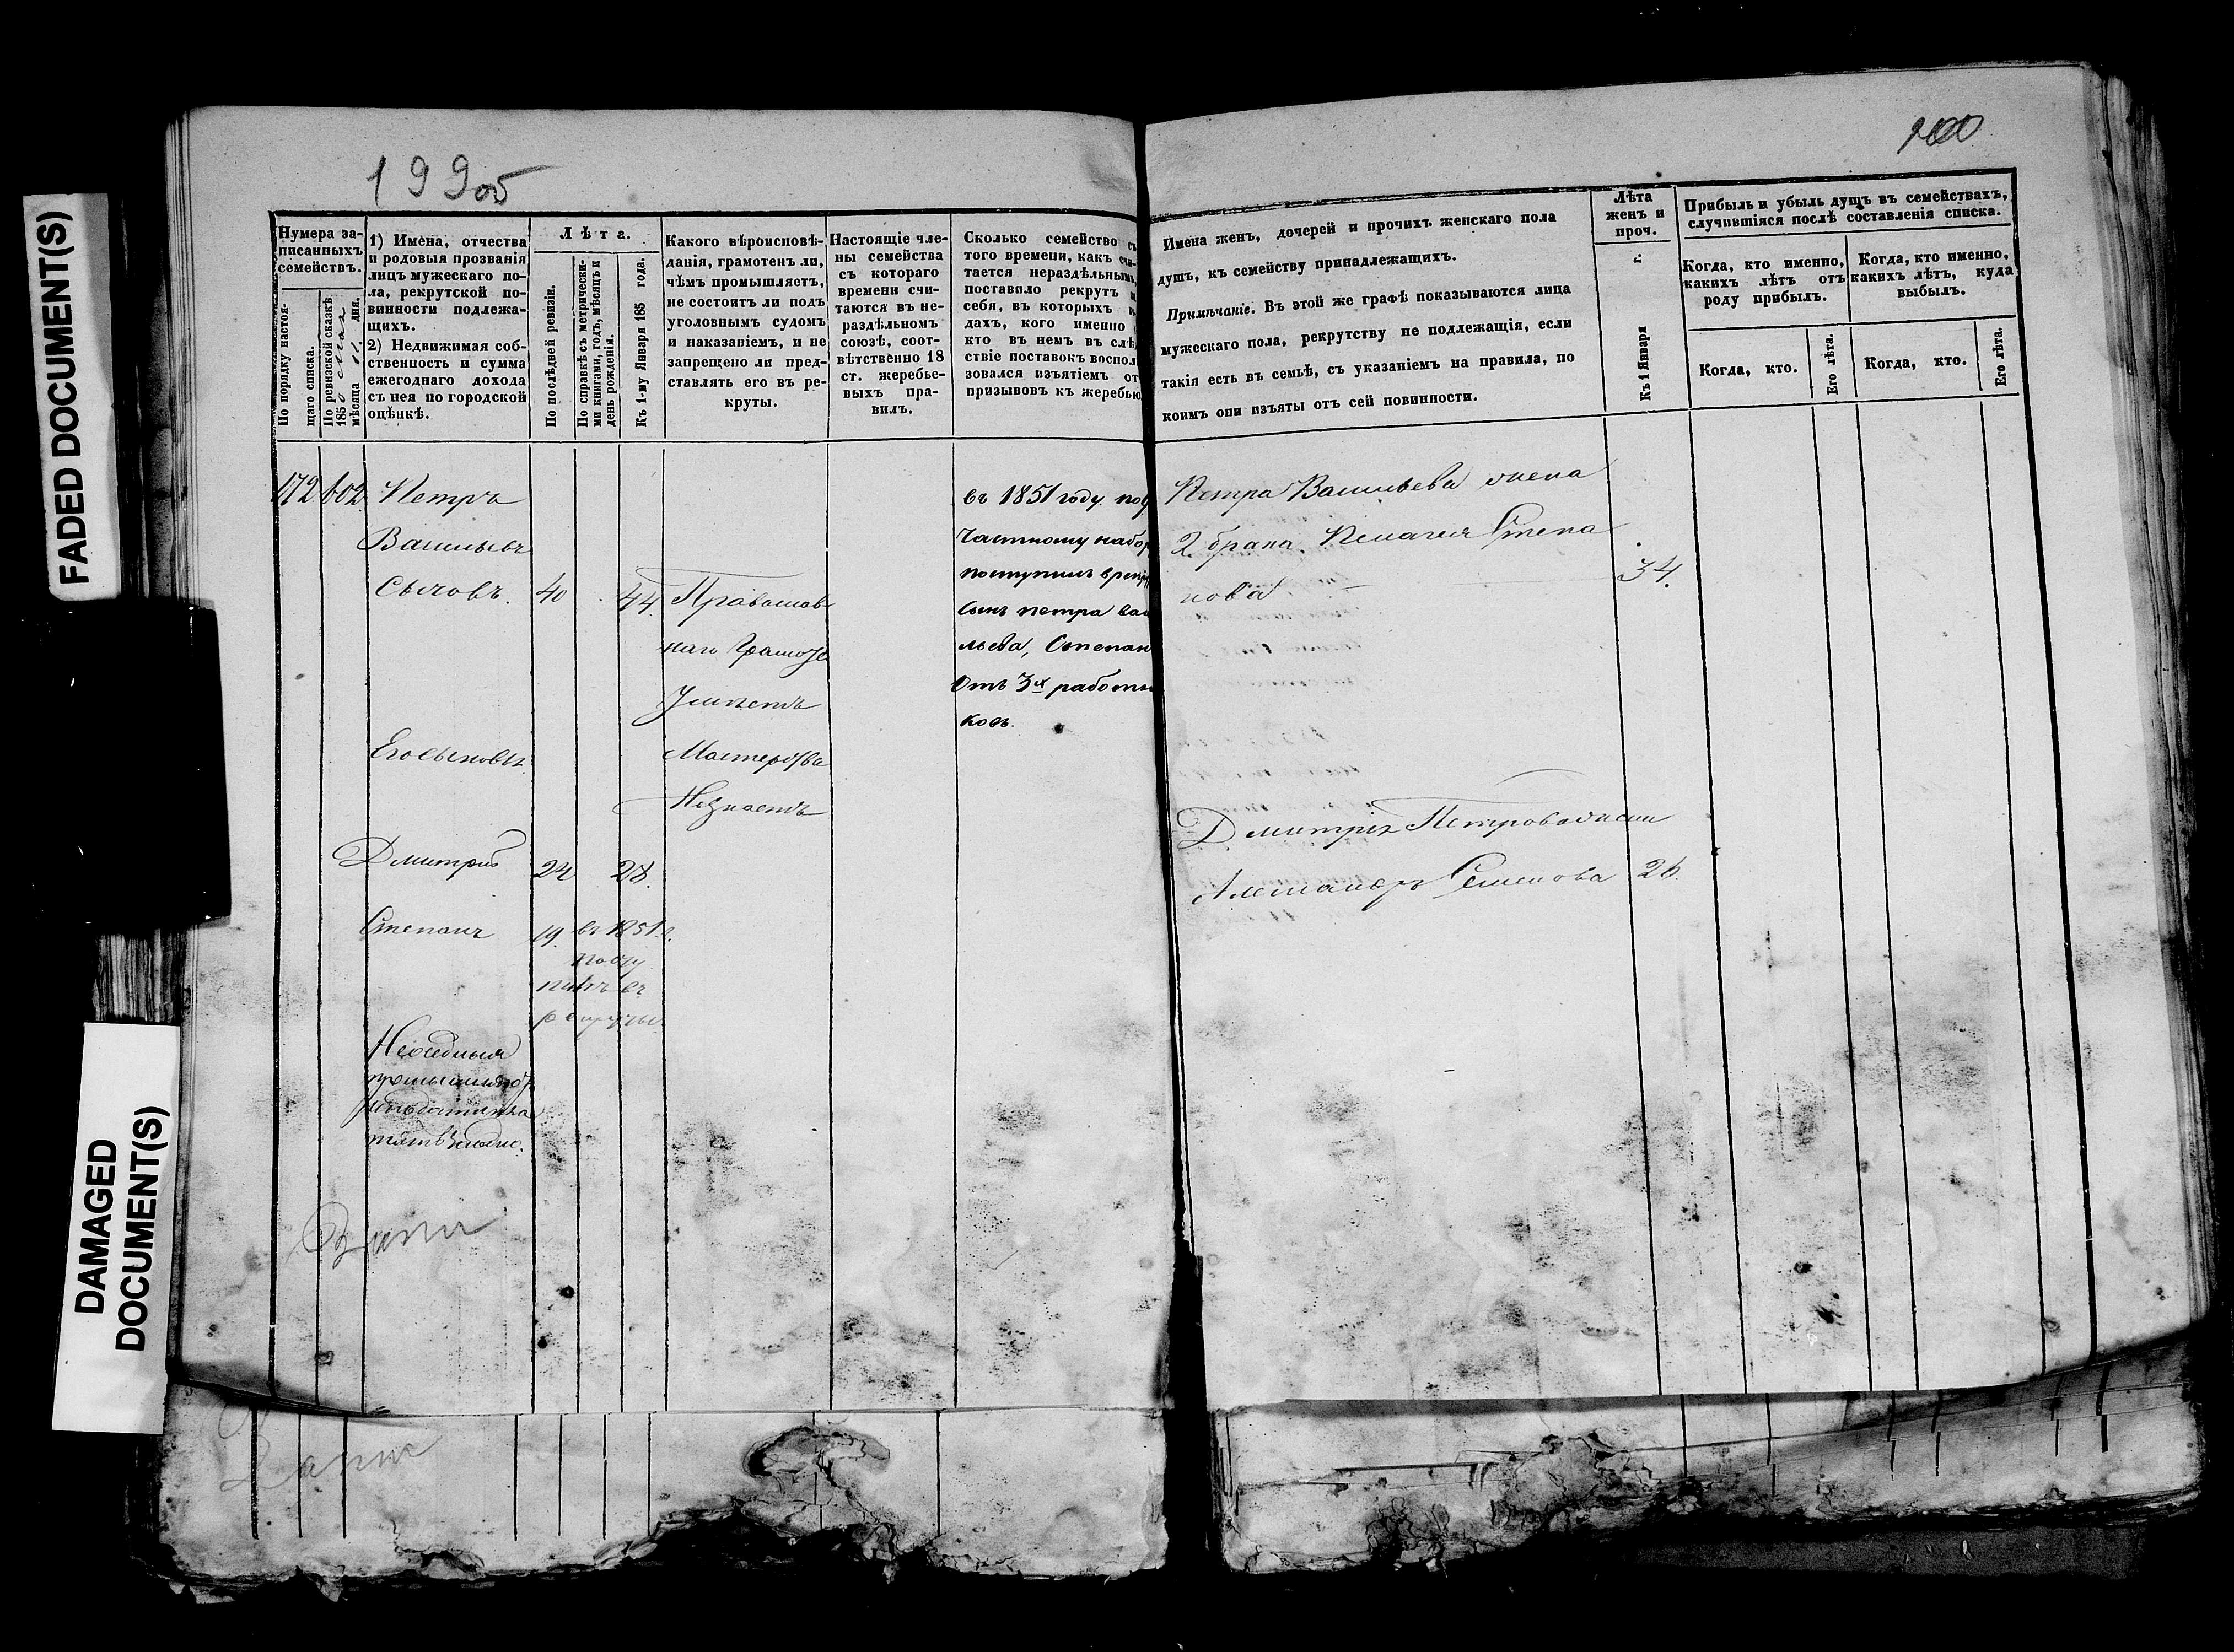 FADED DOCUMENT(S)
DAMAGED
DOCUMENT(S)
199об
200
Нумера за-
писанныхъ
семействъ.
По порядку настоя-
щаго списка.
По ревизской сказкѣ
1850
мѣсяца дня.
1) Имена, отчества
и родовыя прозванія
лицъ мужескаго по-
ла, рекрутской по-
винности подлежа-
щихъ.
2) Недвижимая соб-
ственность и сумма
ежегоднаго дохода
съ нея по городской
оцѣнкѣ.
Лѣта.
По послѣдней ревизіи.
По справкѣ съ метрически-
ми книгами, годъ, мѣсяцъ и
день рожденія.
Къ 1-му Января 185 года.
Какого вѣроисповѣ-
данія, грамотенъ ли,
чѣмъ промышляетъ,
не состоитъ ли подъ
уголовнымъ судомъ
и наказаніемъ, и не
запрещено ли пред-
ставлять его въ ре-
круты.
Настоящіе чле-
ны семейства
съ котораго
времени счи-
таются въ не-
раздѣльномъ
союзѣ, соот-
вѣтственно 18
ст. жеребье-
выхъ пра-
вилъ.
Сколько семейство съ
того времени, какъ счи-
тается нераздѣльнымъ,
поставило рекрутъ
себя, въ которыхъ
дахъ, кого именно
кто въ немъ въ слѣд
ствіе поставокъ воспол
зовался изъятіемъ от
призывовъ къ жеребью
Имена женъ, дочерей и прочихъ женскаго пола
душъ, къ семейству принадлежащихъ.
Примѣчаніе. Въ этой же графѣ показываются лица
мужескаго пола, рекрутству не подлежащія, если
такія есть въ семьѣ, съ указаніемъ на правила, по
коимъ они изъяты отъ сей повинности.
Лѣта
женъ и
проч.
Къ 1 Января г.
Прибыль и убыль душъ въ семействахъ,
случившіяся послѣ составленія списка.
Когда, кто именно,
какихъ лѣтъ отъ
роду прибылъ.
Когда, кто именно,
какихъ лѣтъ, куда
выбылъ.
Когда, кто.
Его лѣта.
Когда, кто.
Его лѣта.
172 602 Петръ
Васильевъ
Сычовъ. 40 44.
Его сыновья
Дмитрій 24 28.
Степанъ 19. въ 1851 г.
посту
пилъ въ
рекруты.
Православ
наго грамоте
Умѣетъ
Мастерства
Незнаетъ
въ 1851 году. по 9
частному набор
поступилъ в рекру
сынъ петра васи
льева, Степан
Отъ 3х работни
ковъ.
Петра Васильева жена
2 брака. Пелагея Степа
нова 34.
Дмитрія Петрова жена
Александра Семенова 26.